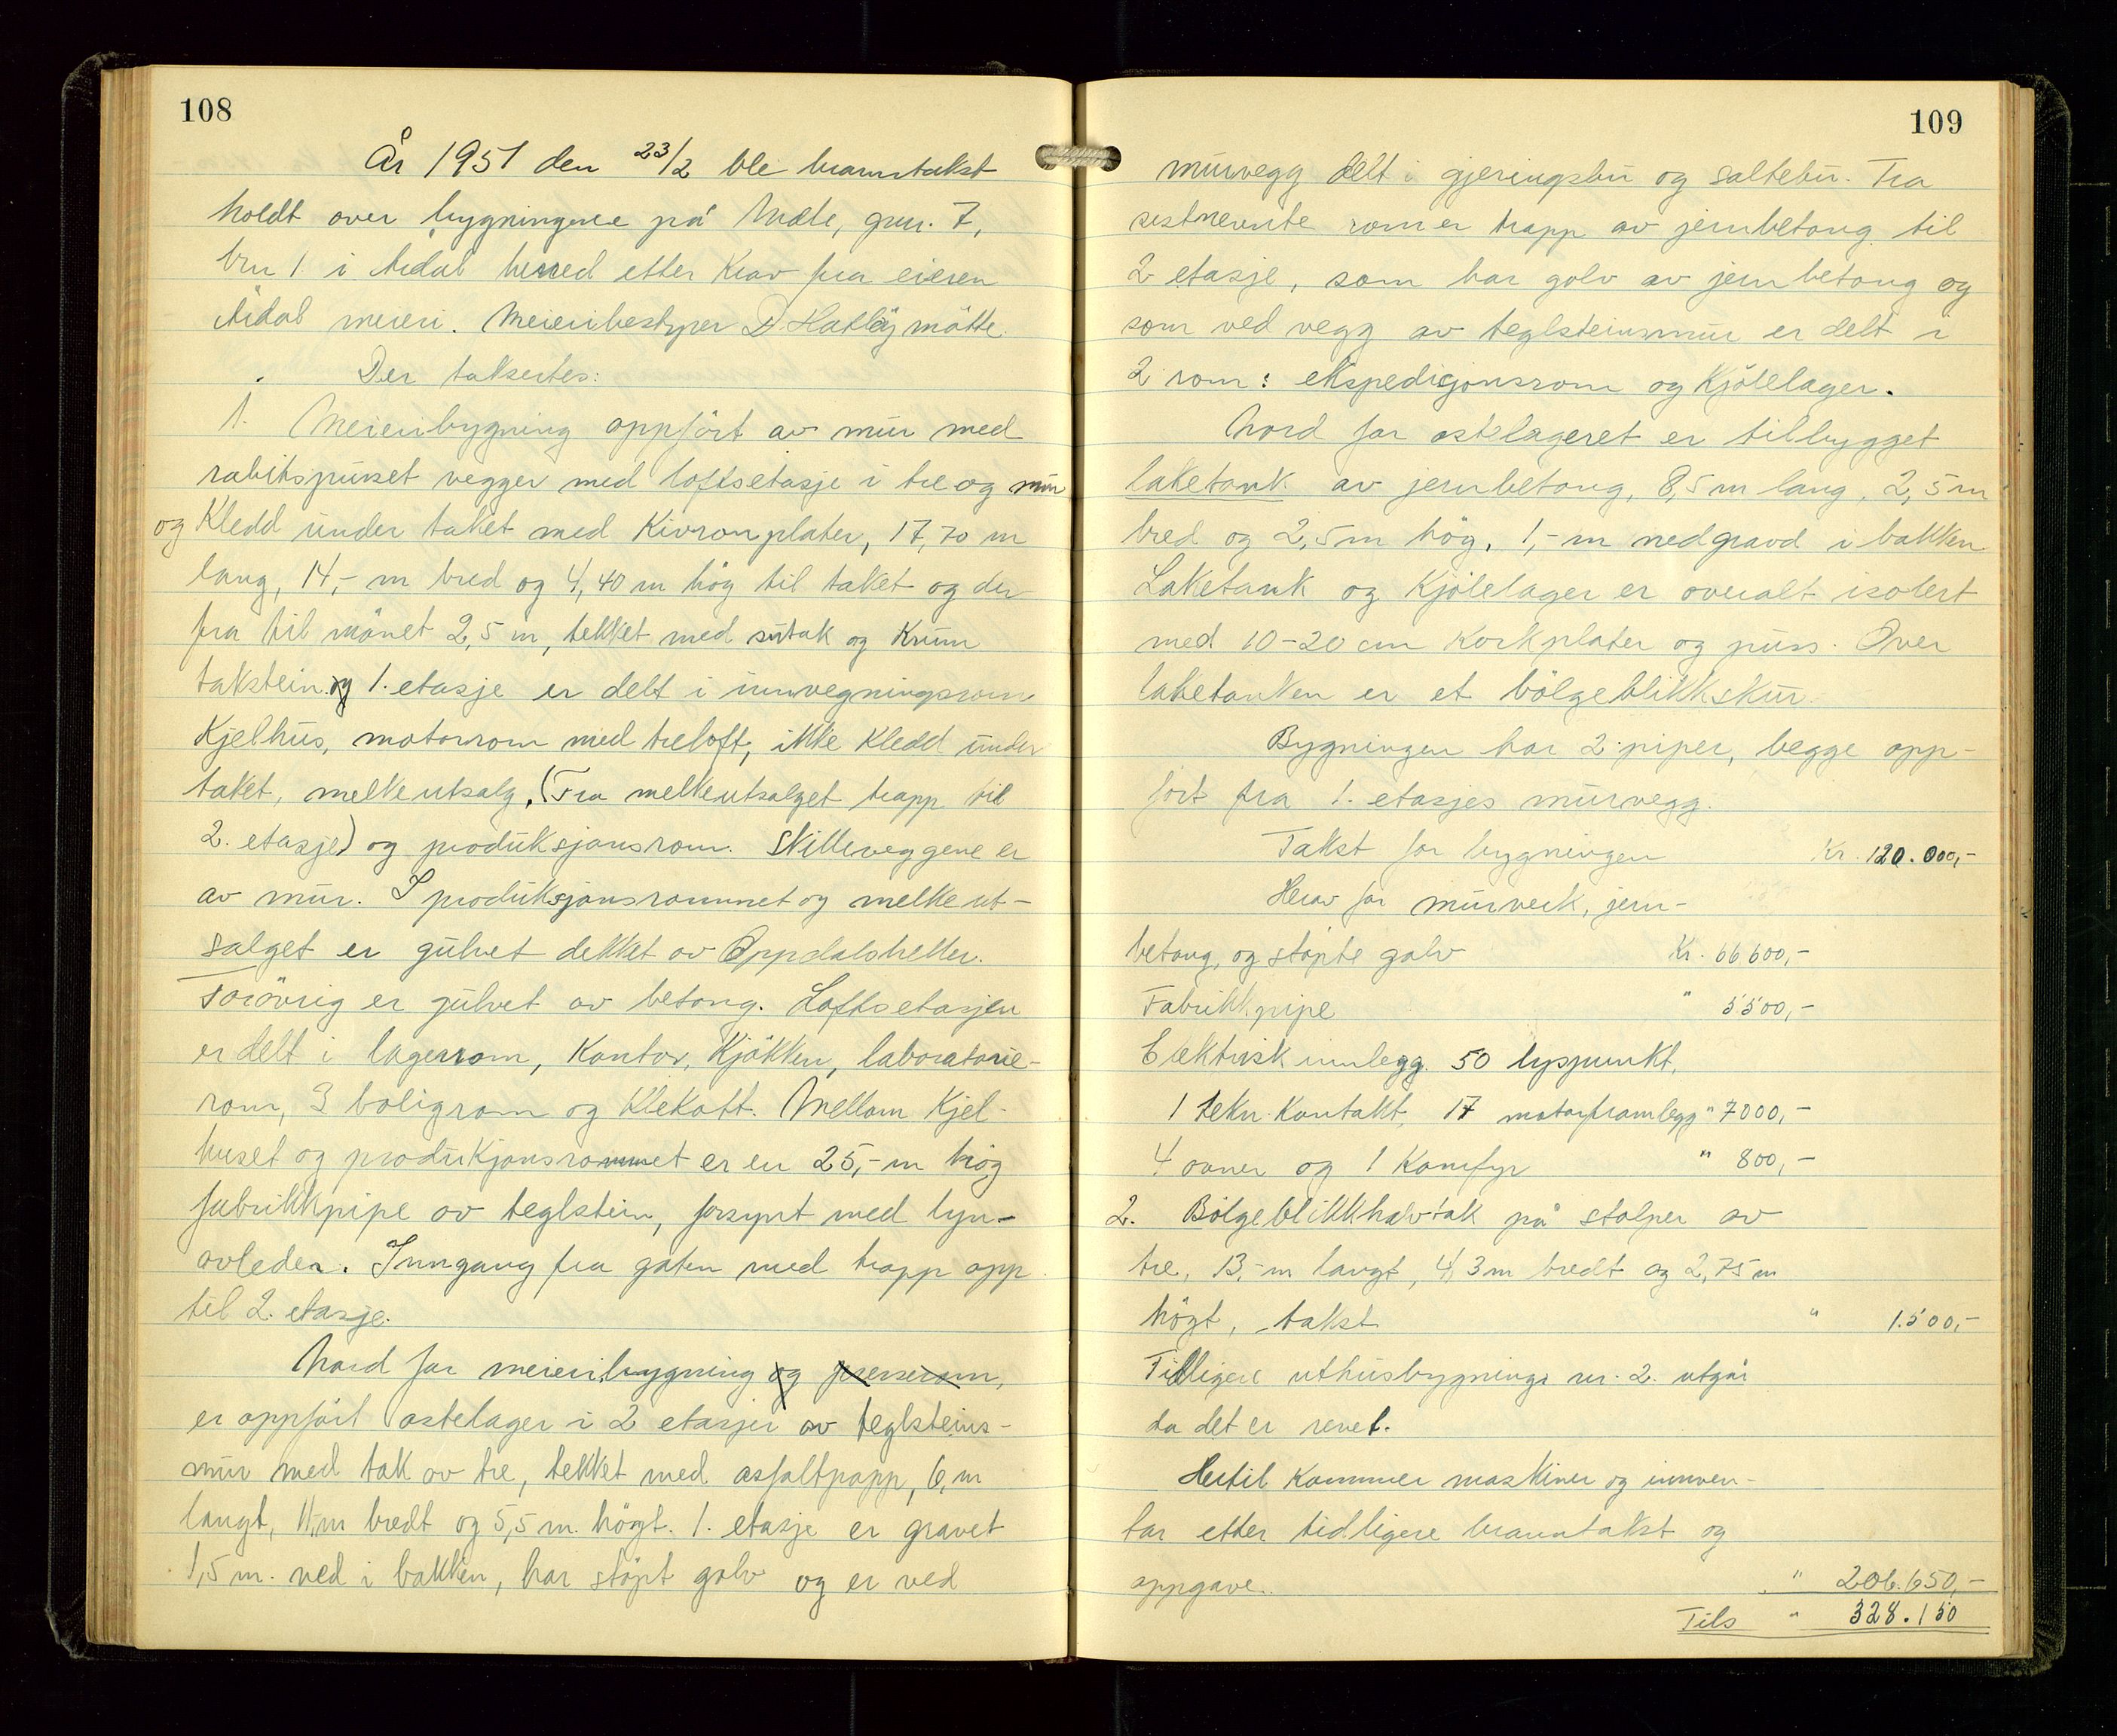 108
År 1951 den 23/2 ble branntakst
holdt over bygningene på Mæle, gnr. 7,
bnr 1 i Årdal herred etter krav fra eieren
Årdal meieri. Meieribestyrer D. Hatløy møtte.
Der takseertes:
1. Meieribygning oppført av mur med
rabitspusset vegger med loftsetasje i tre og mur
og kledd under taket med Kivronplater, 17,70 m
lang, 14,- m bred og 4,40 m høg til taket og der
fra til mønet 2,5 m, tekket med sutak og krum
takstein og 1. etasje er delt i innvegningsrom
Kjelhus, motorrom med treloft, ikke kledd under
taket, melkeutsalg, (Fra melkeutsalget trapp til
2. etasje) og produksjonsrom. Skilleveggene er
av mur. I produksjonsrommet og melkeut-
salget er gulvet dekket av Oppdalsheller.
Forøvrig er gulvet av betong. Loftsetasjen
er delt i lagerrom, Kontor, Kjøkken, laboratorie-
rom, 3 boligrom og klekott. Mellom Kjel-
huset og produkjonsrommet er en 25,- m høg
fabrikkpipe av teglstein, forsynt med lyn-
avleder. Inngang fra gaten med trapp opp
til 2. etasje.
Nord for meieribygning og presserom,
er oppført ostelager i 2 etasjer av teglsteins-
mur med tak av tre, tekket med asfaltpapp, 6,m
langt, 11,m bredt og 5,5 m. høgt. 1. etasje er gravet
1,5 m. ned i bakken, har støpt golv og er ved
109
murvegg delt i gjeringsbu og saltebu. Fra
sistnevnte rom er trapp av jernbetong til
2 etasje, som har golv av jernbetong og
som ved vegg av teglsteinsmur er delt i
2 rom: ekspedisjonsrom og Kjølelager.
Nord for ostelageret er tilbygget
laketank av jernbetong, 8,5 m lang, 2,5 m
bred og 2,5 m høg, 1,- m nedgravd i bakken.
Laketank og Kjølelager er overalt isolert
med 10-20 cm Korkplater og puss. Over
laketanken er et bølgeblikkskur.
Bygningen har 2 piper, begge opp-
ført fra 1. etasjes murvegg.
Takst for bygningen Kr. 120.000,-
Herav for murverk, jern-
betong, og støpte golv Kr. 66600,-
Fabrikkpipe " 5500,-
Elektrisk innlegg. 50 lyspunkt,
1 tekn. Kontakt, 17 motorframlegg " 7000,-
4 ovner og 1 Komfyr " 800,-
2. Bølgeblikkhalvtak på stolper av
tre, 13,-m langt, 4,3 m bredt og 2,75 m
høgt, takst " 1.500,-
Tidligere uthusbygnings nr. 2. utgår
da det er revet.
Hertil kommer maskiner og innven-
tar etter tidligere branntakst og
oppgave. " 206.650,-
Tils " 328.150